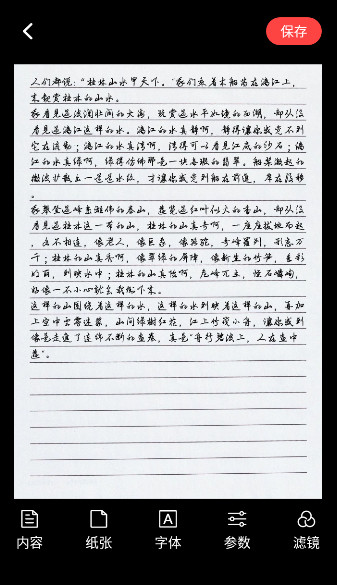 保存
人们都说:"桂林山水甲天下。"我们乘着木船荡在漓江上,
来观赏桂林的山水。
我看见过波澜壮阔的大海,玩赏过水平如镜的西湖,却从没
看见过漓江这样的水。漓江的水真静啊,静得让你感觉不到
它在流动;漓江的水真清啊,清得可以看见江底的沙石;漓
江的水真绿啊,绿得仿佛那是一块无瑕的翡翠。船桨激起的
微波扩散出一道道水纹,才让你感觉到船在前进,岸在后移
。
我攀登过峰峦雄伟的泰山,游览过红叶似火的香山,却从没
看见过桂林这一带的山,桂林的山真奇啊,一座座拔地而起
,各不相连,像老人,像巨象,像骆驼,奇峰罗列,形态万
千;桂林的山真秀啊,像翠绿的屏障,像新生的竹笋,色彩
明丽,倒映水中;桂林的山真险啊,危峰兀立,怪石嶙峋,
好像一不小心就会栽倒下来。
这样的山围绕着这样的水,这样的水倒映着这样的山,再加
上空中云雾迷蒙,山间绿树红花,江上竹筏小舟,让你感到
像是走进了连绵不断的画卷,真是"舟行碧波上,人在画中
游"。
内容
纸张
字体
参数
滤镜